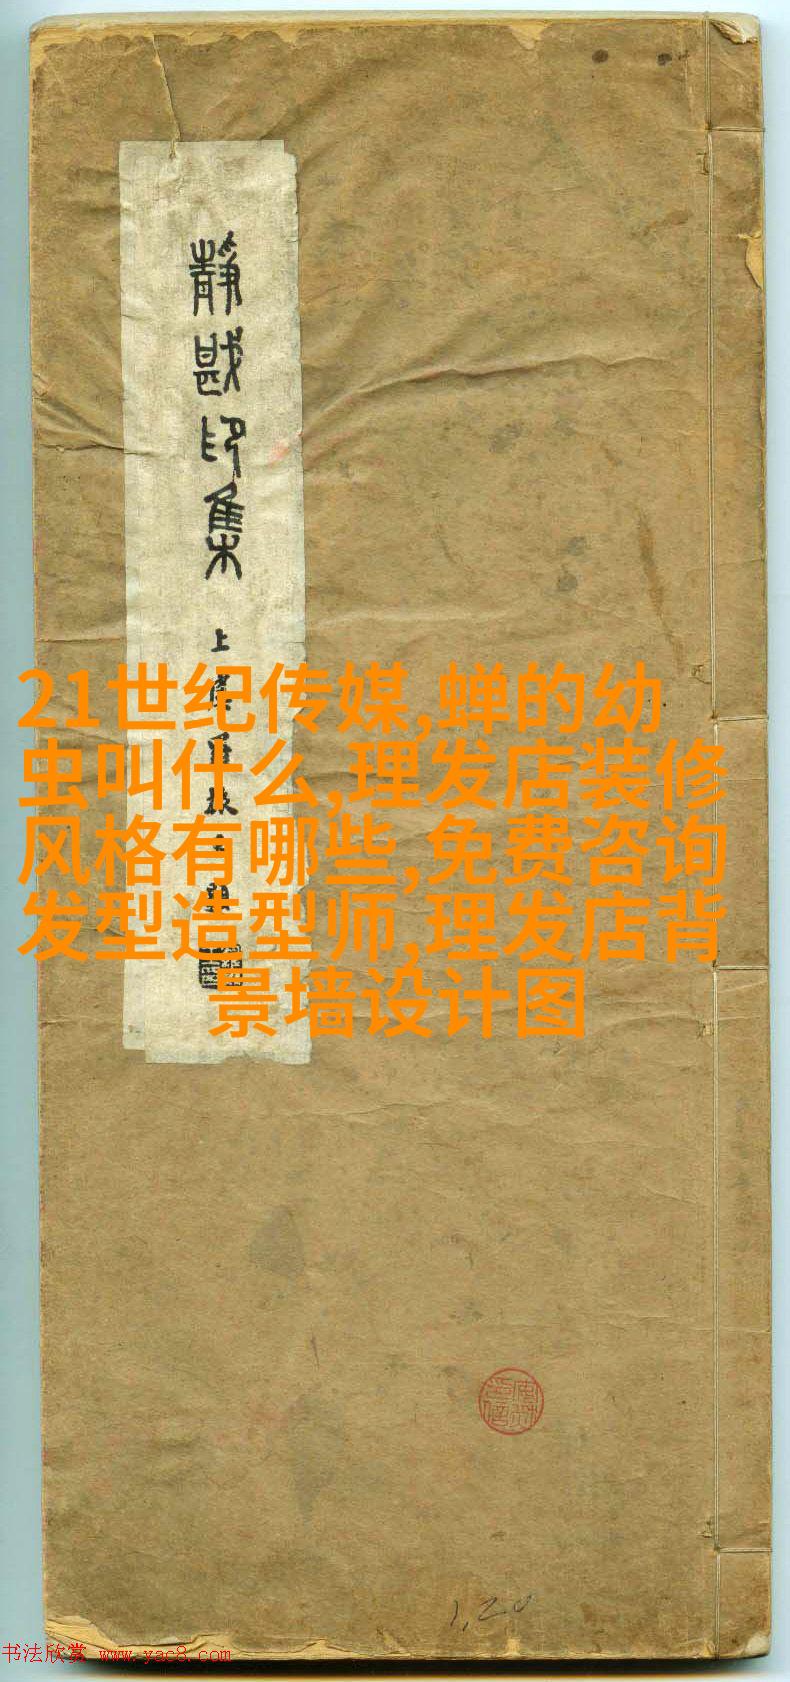 靜戡印集
21世纪传媒,蝉的幼
虫叫什么,理发店装修
风格有哪些,免费咨询
发型造型师,理发店背
景墙设计图
1,20
书法欣赏 www.yac8.com